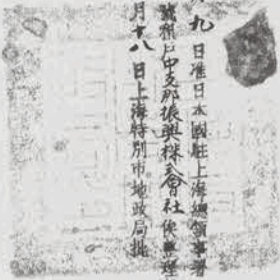 九日准日本國駐上海總領事署
號租戶中支那振興株式會社使無
月十八日上海特別市地政局批